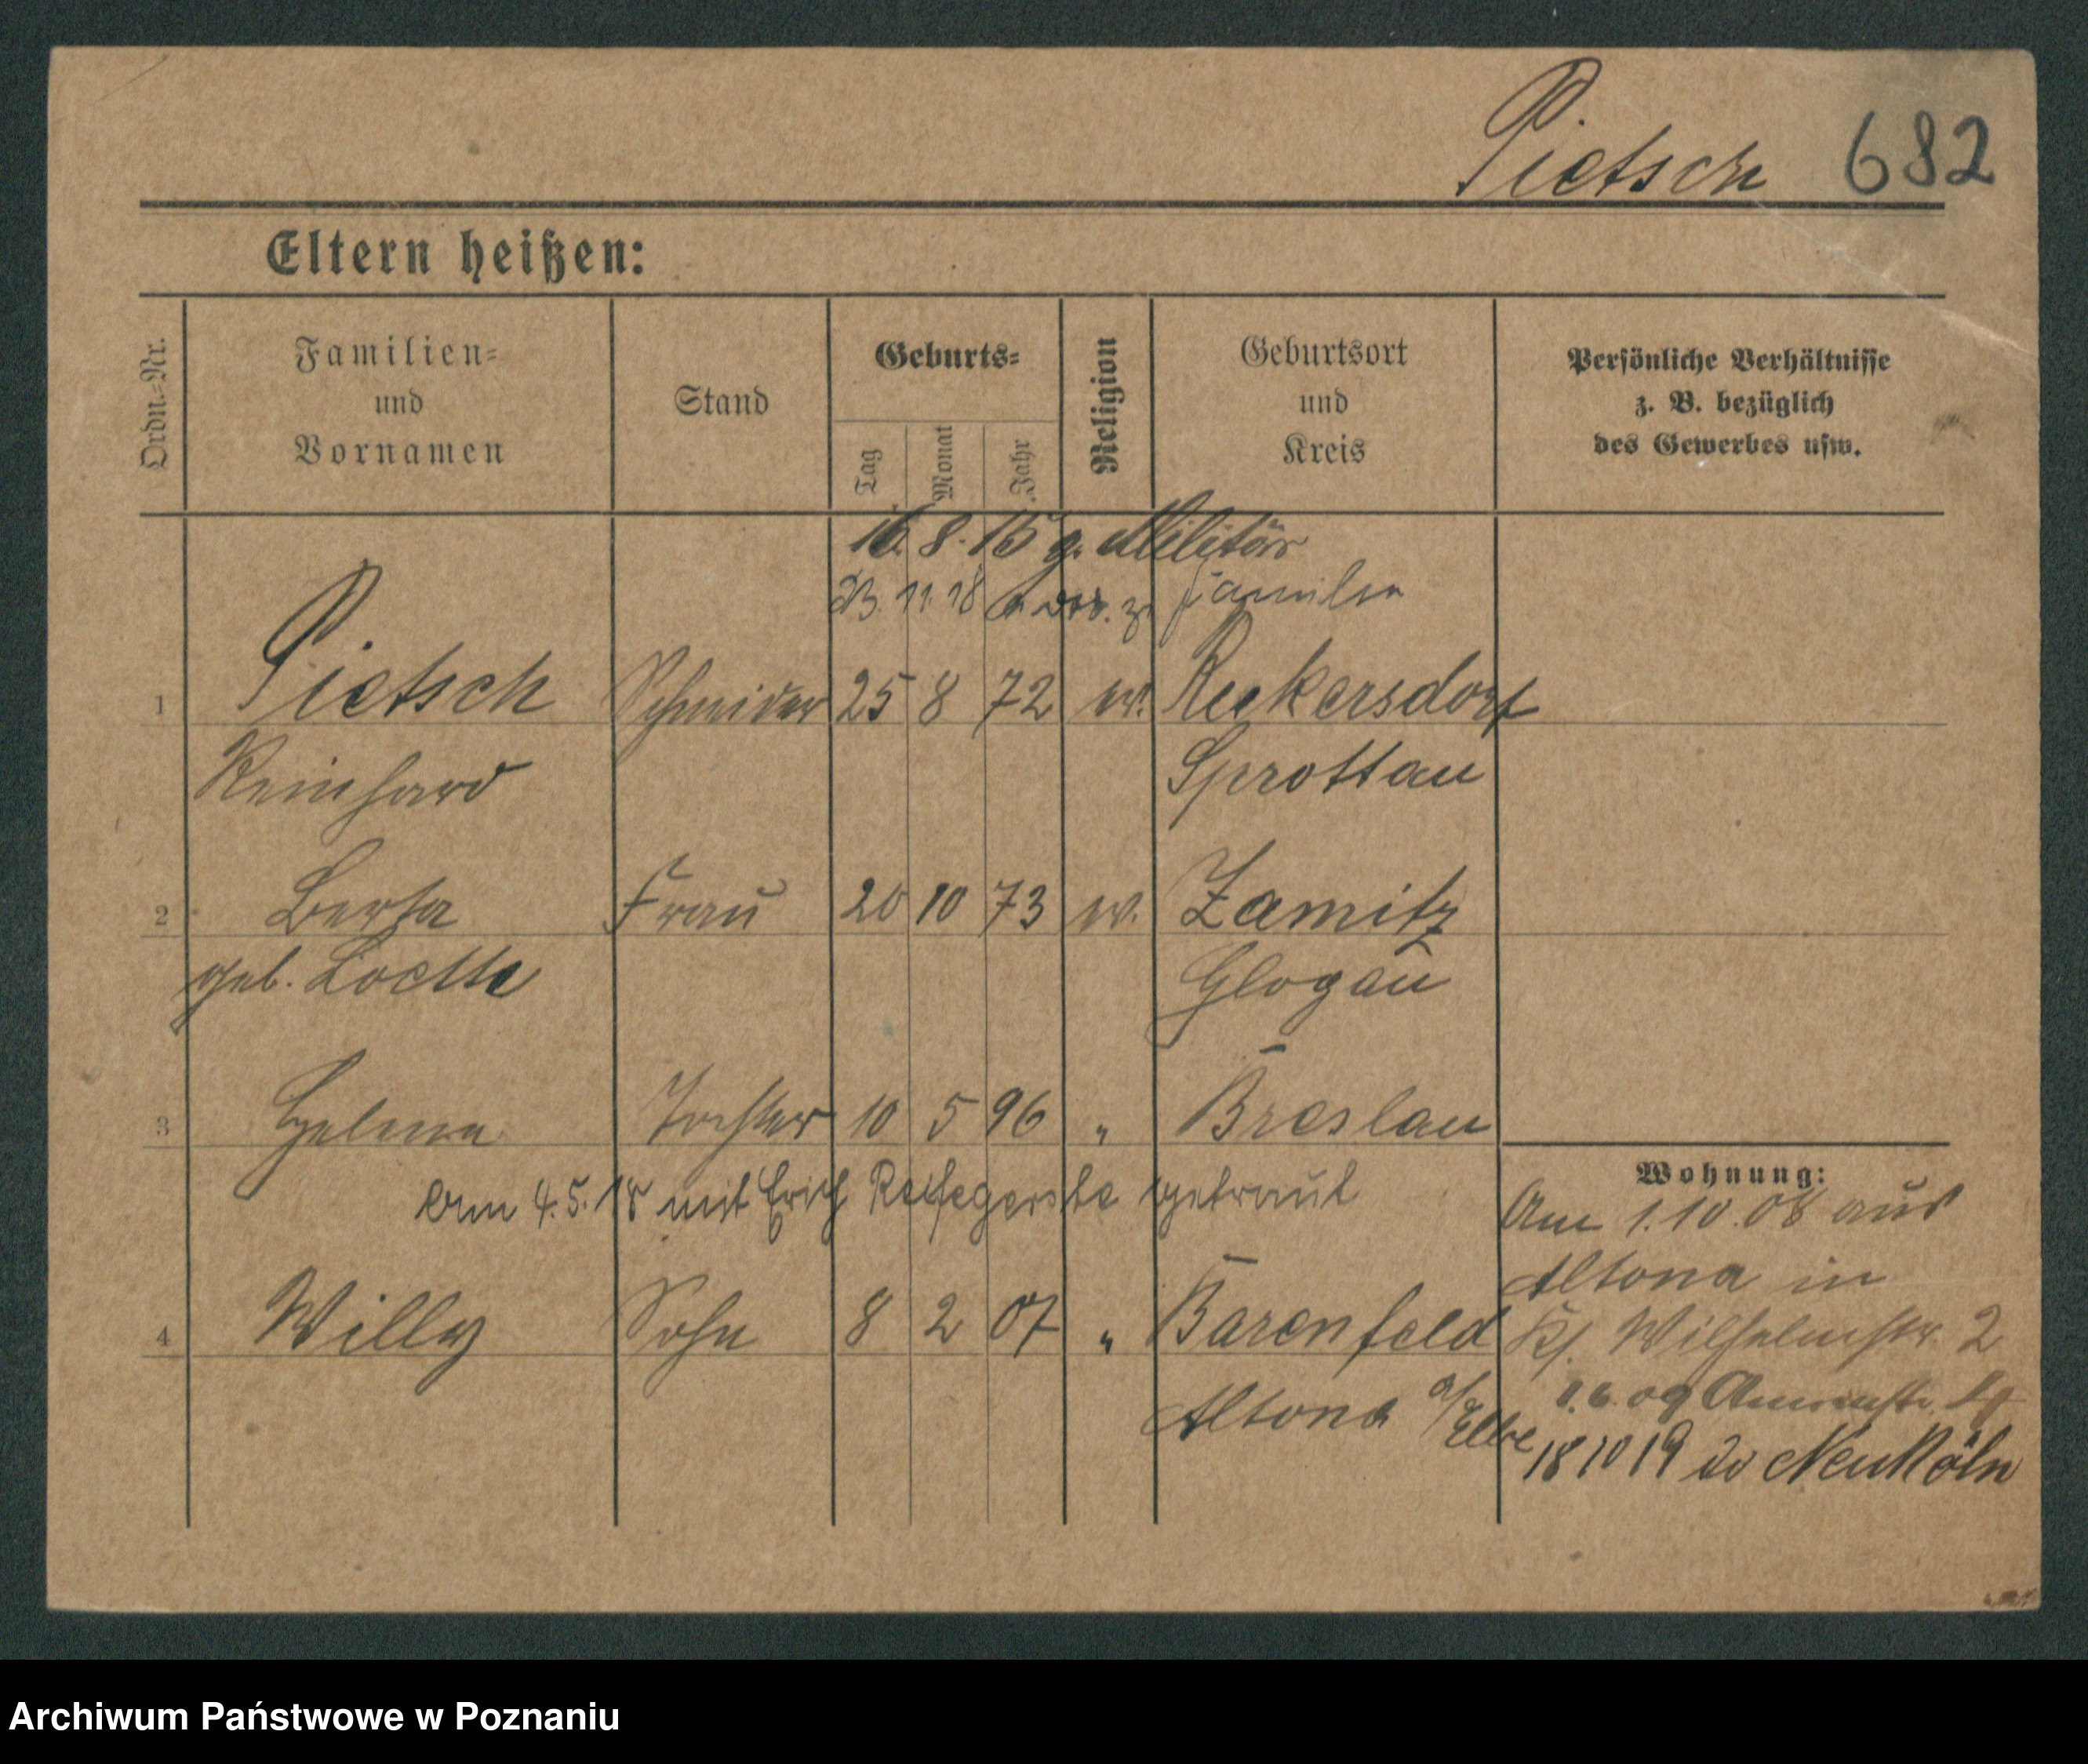 Pietsch 682
Eltern heißen:
Ordn.-Nr.
Familien-
und
Vornamen
Stand
Geburts-
Tag
Monat
Jahr
Religion
Geburtsort
und
Kreis
Persönliche Verhältnisse
z. B. bezüglich
des Gewerbes usw.
16. 8. 15 z. Militär
23. 11. 18 z. Familie
1 Pietsch Schneider 25 8 72 ev. Reckersdorf
Reinhard Sprottau
2 Berta Frau 20 10 73 ev. Zamitz
geb. Loctte Glogau
3 Helena Tochter 10 5 96 " Breslau
Am 4. 5. 18 mit Erich Reifegerste getraut
4 Willy Sohn 8 2 07 " Barenfeld
Altona a/Elbe
Wohnung:
Am 1. 10. 08 aus
Altona in
Wilhelmstr. 2
1. 6. 09
18 10 19 Neukölln
Archiwum Państwowe w Poznaniu